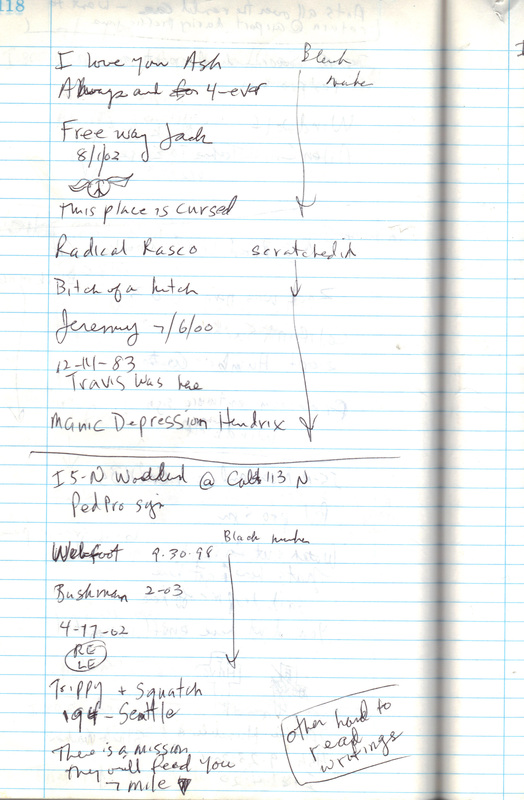 118
I love you Ash
Always and for 4-ever
Black
Free way Jack
8/1/02
This place is cursed
Radical Rasco scratched in
Bitch of a hitch
Jeremy 7/6/00
12-14-83
Travis was here
Manic Depression Hendrix
I5-N Woodland @ 113 N
Ped Pro sign
Black
Webfoot 9.30.98
Bushman 2-03
4-17-02
RE
LE
Trippy + Squatch
Seattle
There is a mission
they will feed you
7 mile
other hard to
read
writings